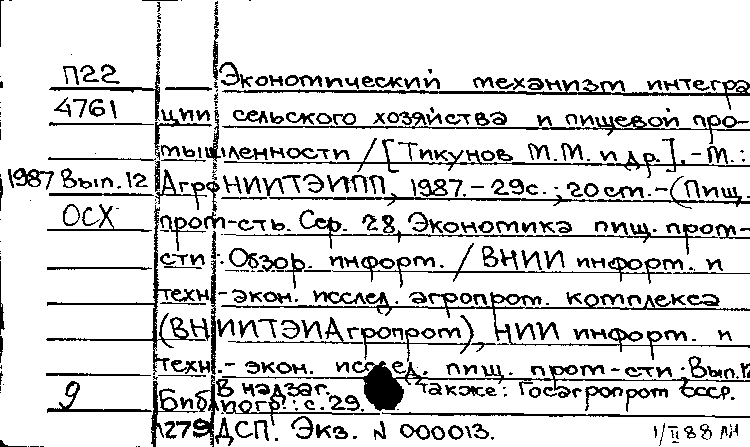 П22 Экономический механизм интегра
4761 ции сельского хозяйства и пищевой про-
мышленности / [Тикунов М.М. и др.]. - М.:
1987 Вып.12 АгроНИИТЭИПП, 1987. - 29с.; 20см. - (Пищ.
ОСХ пром-сть. Сер. 28, Экономика пищ. пром-
сти: Обзор. информ. / ВНИИ информ. и
техн.-экон. исслед. агропром. комплекса
(ВНИИТЭИАгропром), НИИ информ. и
техн.- экон. исслед. пищ. пром-сти; Вып.12
В надзаг. также: Госагропром СССР.
9 Библиогр.: с. 29.
1279 ДСП. Экз. N 000013. 1/II 88